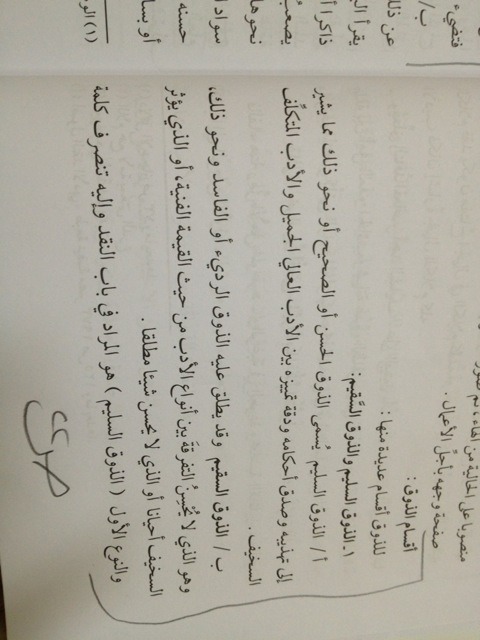 منصوبا على الحالية من الهاء، ثم
صفحة وجهه بأجلّ الأعمال .
أقسام الذوق :
للذوق أقسام عديدة منها :
١ـ الذوق السليم والذوق السَّقيم:
أ/ الذوق السليم يُسمى الذوق الحسن أو الصحيح أو نحو ذلك مما يشير
إلى تهذيبه وصدق أحكامه ودقة تمييزه بين الأدب العالي الجميل والأدب المتكلَّف
السخيف .
ب/ الذوق السقيم وقد يطلق عليه الذوق الرديء أو الفاسد ونحو ذلك،
وهو الذي لا يُحْسِنُ التفرقةَ بين أنواع الأدب من حيث القيمة الفنية، أو الذي يؤثر
السخيف أحيانا أو الذي لا يحسن شيئا مطلقا .
والنوع الأول ( الذوق السليم ) هو المراد في باب النقد وإليه تنصرف كلمة
فتضيء
ب/
عن ذلك
يقرأ
ذاكرا
نحوها
سواد
حسنه
(١)